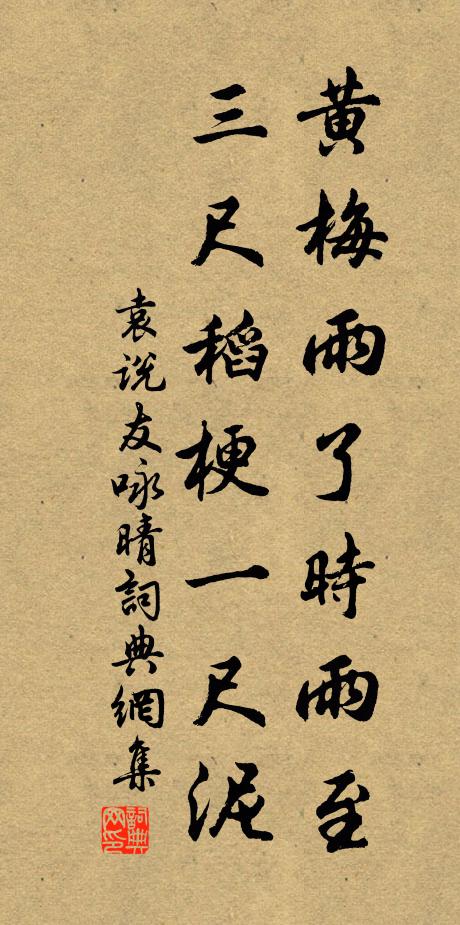 黄梅雨了時雨至
三尺稻梗一尺泥
袁说友咏晴詞典網集
詞典網印